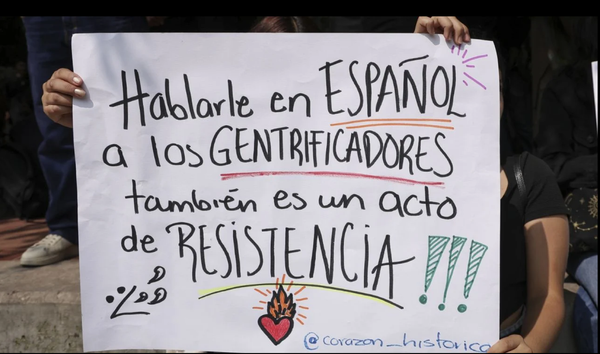 Hablarle en ESPAÑOL
a los GENTRIFICADORES
también es un acto
de RESISTENCIA !!!
@corazon_historico